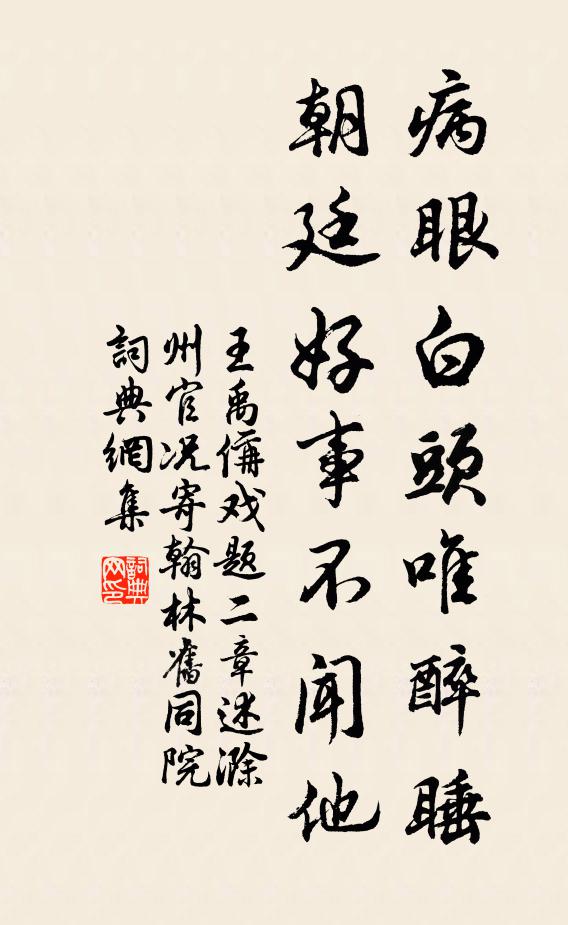 病眼白頭唯醉睡
朝廷好事不聞他
王禹偁戏题二章述滁
州官况寄翰林舊同院
詞典網集
詞典
网印